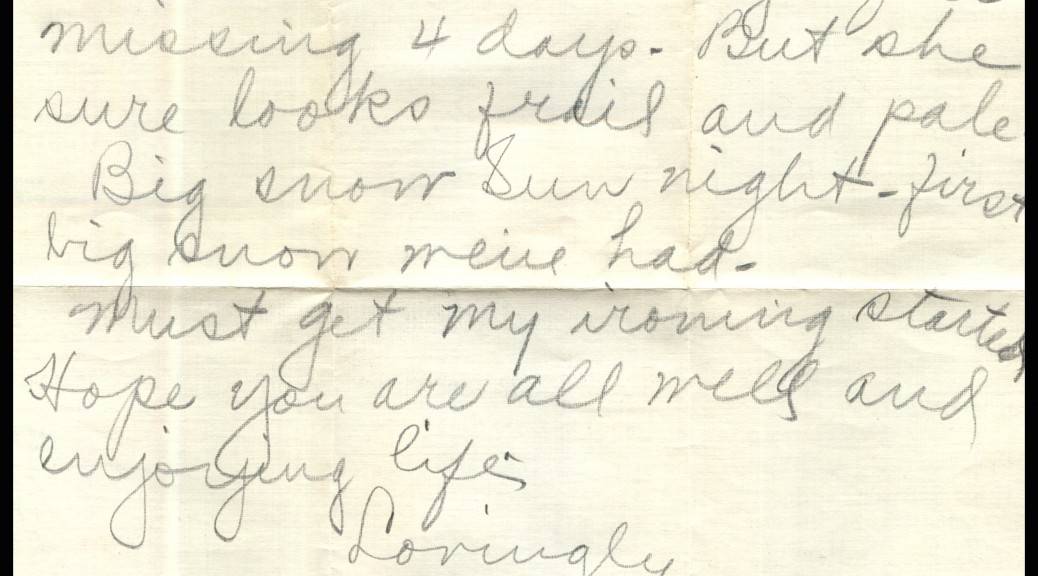 missing 4 days. But she
sure looks frail and pale
Big snow Sun night - first
big snow weive had.
Must get my ironing started
Hope you are all well and
enjoying life
Lovingly